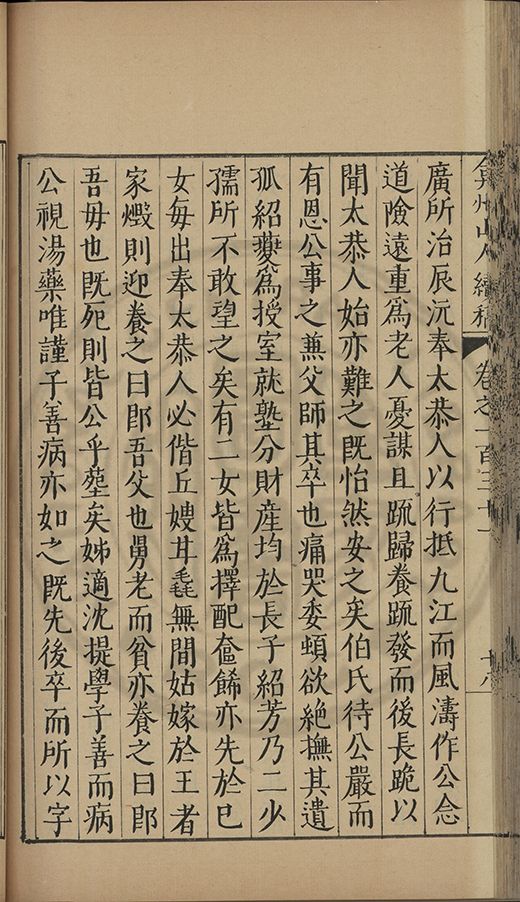 弇州山人續稿 卷之一百三十一 十八
廣所治辰沅奉太恭人以行抵九江而風濤作公念
道險遠重爲老人憂謀且䟽歸養䟽發而後長跪以
聞太恭人始亦難之既怡然安之矣伯氏待公嚴而
有恩公事之兼父師其卒也痛哭委頓欲絶撫其遺
孤紹夔爲授室就塾分財産均於長子紹芳乃二少
孺所不敢望之矣有二女皆爲擇配奩餙亦先於已
女每出奉太恭人必偕丘嫂甘毳無間姑嫁於王者
家燬則迎養之曰郎吾父也舅老而貧亦養之曰郎
吾母也既死則皆公乎塟矣姊適沈提學子善而病
公視湯藥唯謹子善病亦如之既先後卒而所以字